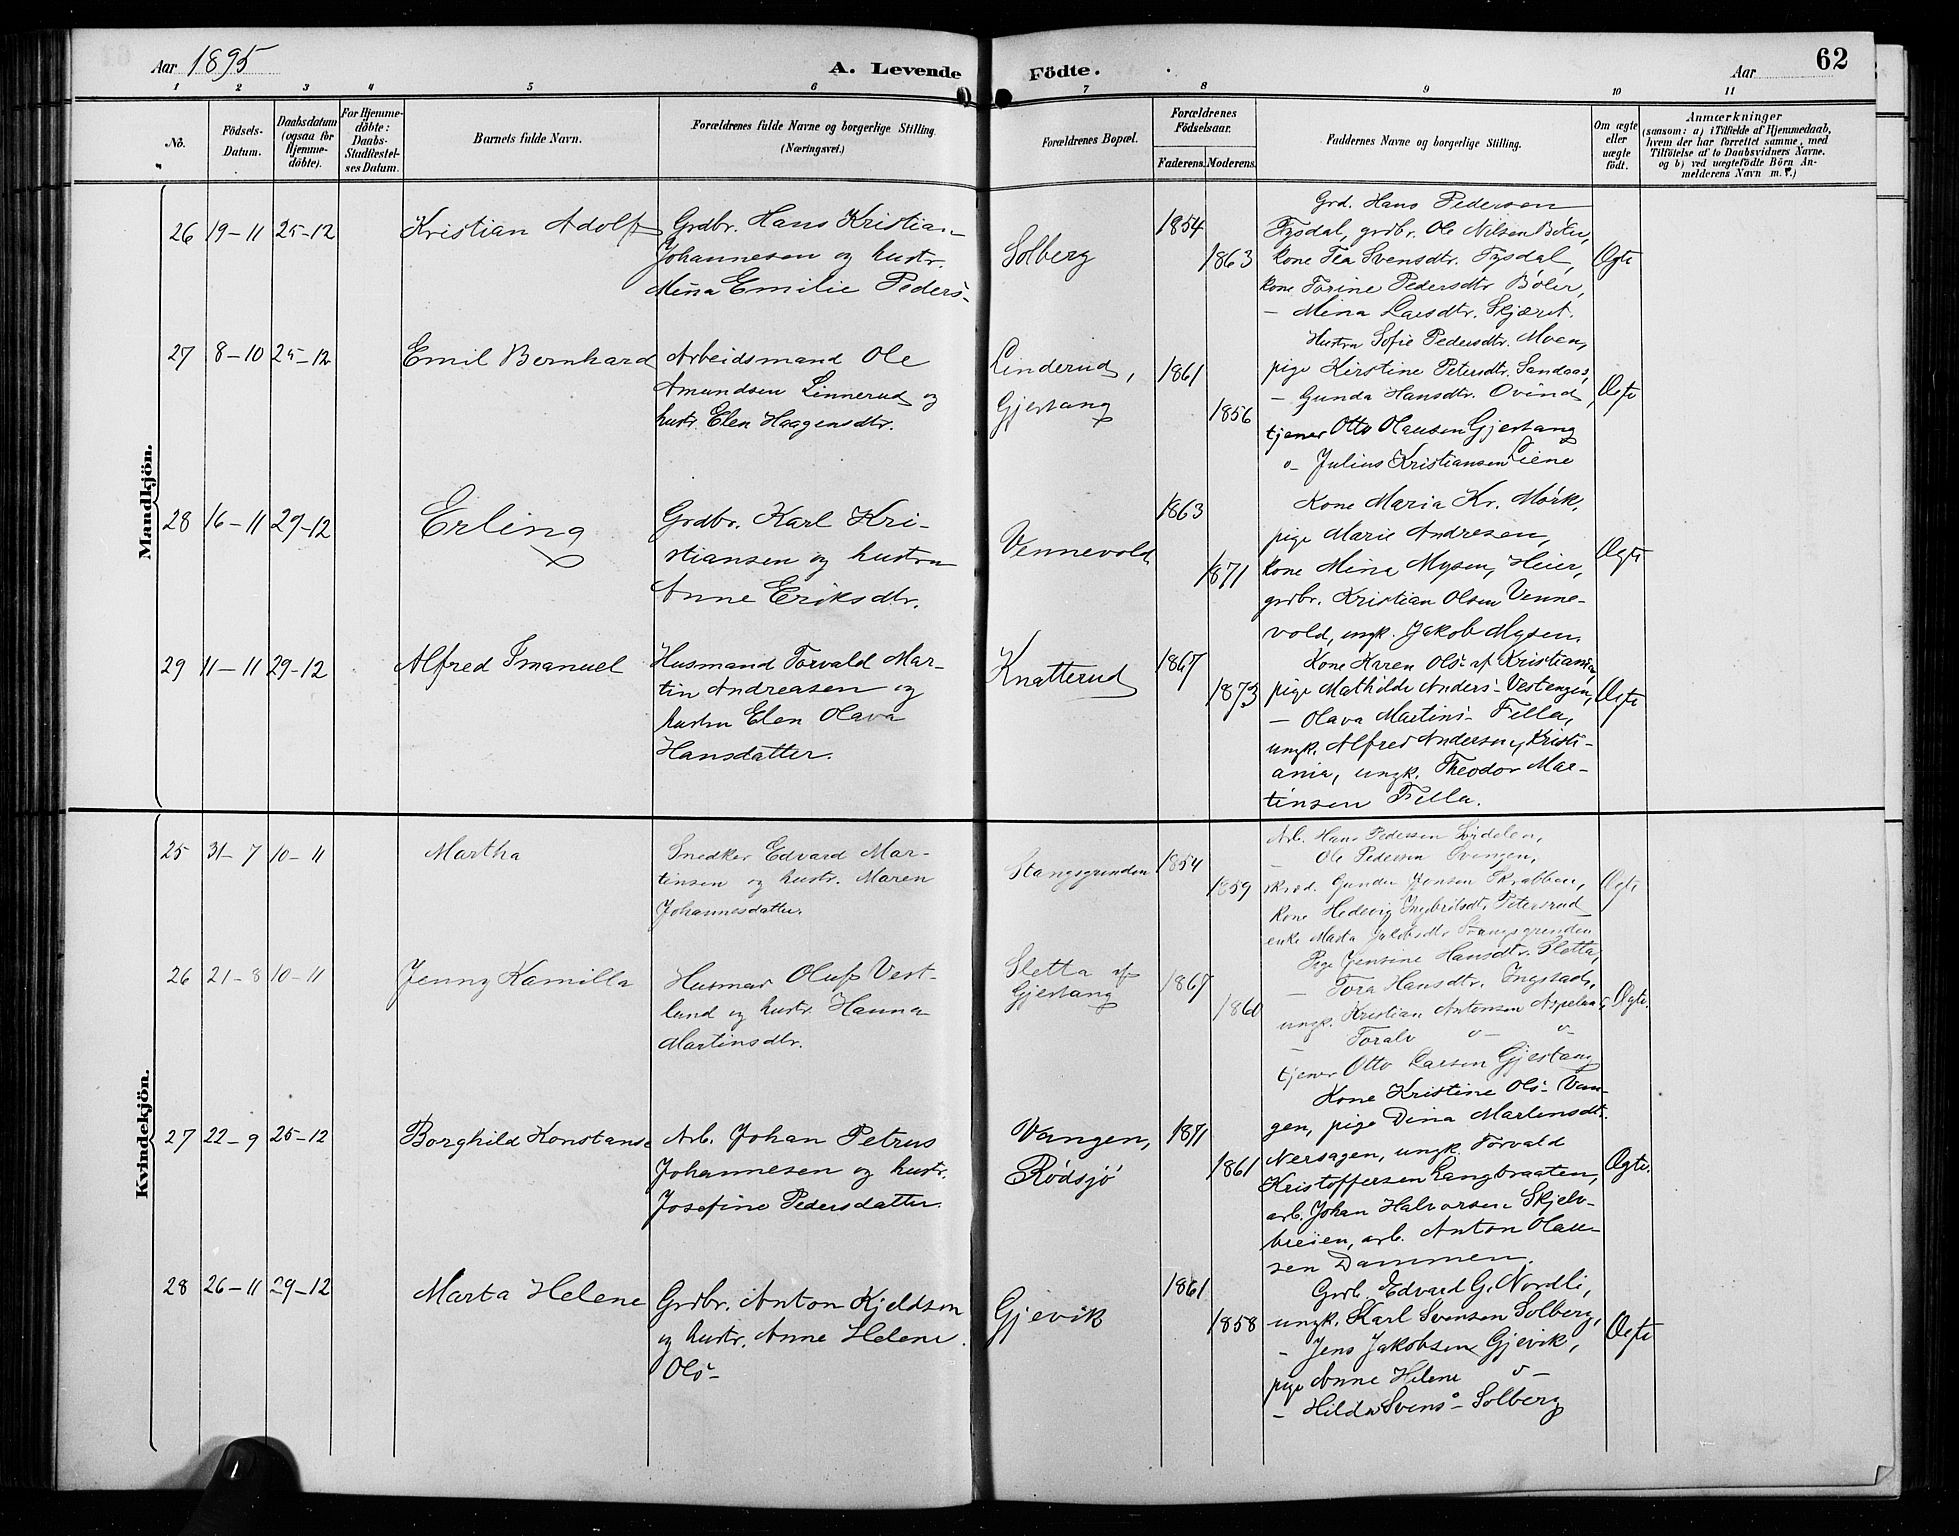 Aar 1895
A. Levende Födte.
Aar
62
1 2 3 4 5 6 7 8 9 10 11
No.
Födsels-
Datum.
Daabsdatum
(ogsaa for
Hjemme-
döbte).
For Hjemme-
döbte:
Daabs-
Stadfæstel-
ses Datum.
Barnets fulde Navn.
Forældrenes fulde Navne og borgerlige Stilling.
(Næringsvei.)
Forældrenes Bopæl.
Forældrenes
Födselsaar.
Faderens. Moderens.
Faddernes Navne og borgerlige Stilling.
Om ægte
eller
uægte
født.
Anmærkninger
(saasom: a) i Tilfælde af Hjemmedaab,
hvem der har forrettet samme, med
Tilföielse af to Daabsvidners Navne.
og b) ved uægtefödte Börn An-
melderens Navn m. v.)
Mandkjön.
26 19-11 25-12 Kristian Adolf
Grdbr. Hans Kristian
Johannesen og hustr.
Mina Emilie Peders-
Solberg
1854
1863
Grd. Hans Pedersen
Tysdal, grdbr. Ole Nilsen Böler,
kone Tea Svensdtr. Tysdal,
kone Torine Pedersdtr Böler,
— Mina Larsdtr. Skjæret.
Ægte
27 8-10 25-12 Emil Bernhard
Arbeidsmand Ole
Amundsen Linnerud og
hustr. Elen Haagensdtr.
Linderud,
Gjerstang
1861
1856
Hustru Sofie Pedersdtr. Moen,
pige Kirstine Petersdtr. Sandaas,
— Gunda Hansdtr. Ovind,
tjener Otto Olausen Gjerstang
o- Julius Kristiansen Liene
Ægte
28 16-11 29-12 Erling
Grdbr. Karl Kri-
stiansen og hustru
Anne Eriksdtr.
Vennevold
1863
1871
Kone Maria Kr. Mörk,
pige Marie Andresen,
kone Mina Mysen, Heier,
grdbr. Kristian Olsen Venne-
vold, ungk. Jakob Mysen.
Ægte
29 11-11 29-12 Alfred Imanuel
Husmand Torvald Mar-
tin Andreasen og
hustru Elen Olava
Hansdatter.
Knatterud
1867
1873
Kone Karen Ols- af Kristiania,
pige Mathilde Anders- Vestengen,
— Olava Martins- Fella,
ungk. Alfred Andersen, Kristi-
ania, ungk. Theodor Mar-
tinsen Fella.
Ægte
Kvindekjön.
25 31-7 10-11 Martha
Snedker Edvard Mar-
tinsen og hustr. Maren
Johannesdatter.
Stangsgrunden
1854
1859
Arb. Hans Pedersen
— Ole Pedersen Svingen,
skræd. Gunder Jensen Skrabben,
kone Hedevig Ingebritsdtr. Petersrud
enke Marta Jakobsdtr Stangsgrunden
Ægte
26 21-8 10-11 Jenny Kamilla
Husmand Oluf Vest-
lund og hustr. Hanna
Martinsdtr.
Sletta af
Gjerstang
1867
1860
Pige Jensine Hansdtr. Sletta,
— Tora Hansdtr. Ingstad,
ungk. Kristian Antonsen
— Toralv o- o-
tjener Otto Larsen Gjerstang
Ægte.
27 22-9 25-12 Borghild Konstanse
Arb. Johan Petrus
Johannesen og hustr.
Josefine Pedersdatter.
Vangen,
Rödsjö
1871
1861
Kone Kristine Ols- Van-
gen, pige Dina Martinsdtr.
Nersagen, ungk. Torvald
Kristoffersen Langbraaten,
arb. Johan Halvorsen Skjelv-
breien, arb. Anton Olau-
sen Dammen.
Ægte.
28 26-11 29-12 Marta Helene
Grdbr. Anton Kjeldsen
og hustr. Anne Helene
Ols-
Gjevik
1861
1858
Grb. Edvard G. Nordli,
ungk. Karl Svensen Solberg,
— Jens Jakobsen Gjevik,
pige Anne Helene o-
— Hilda Svens- Solberg
Ægte